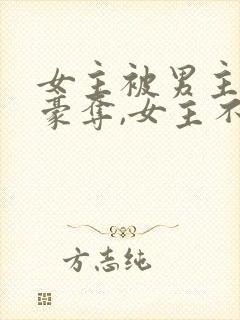 女主被男主
豪夺,女主不
方志纯